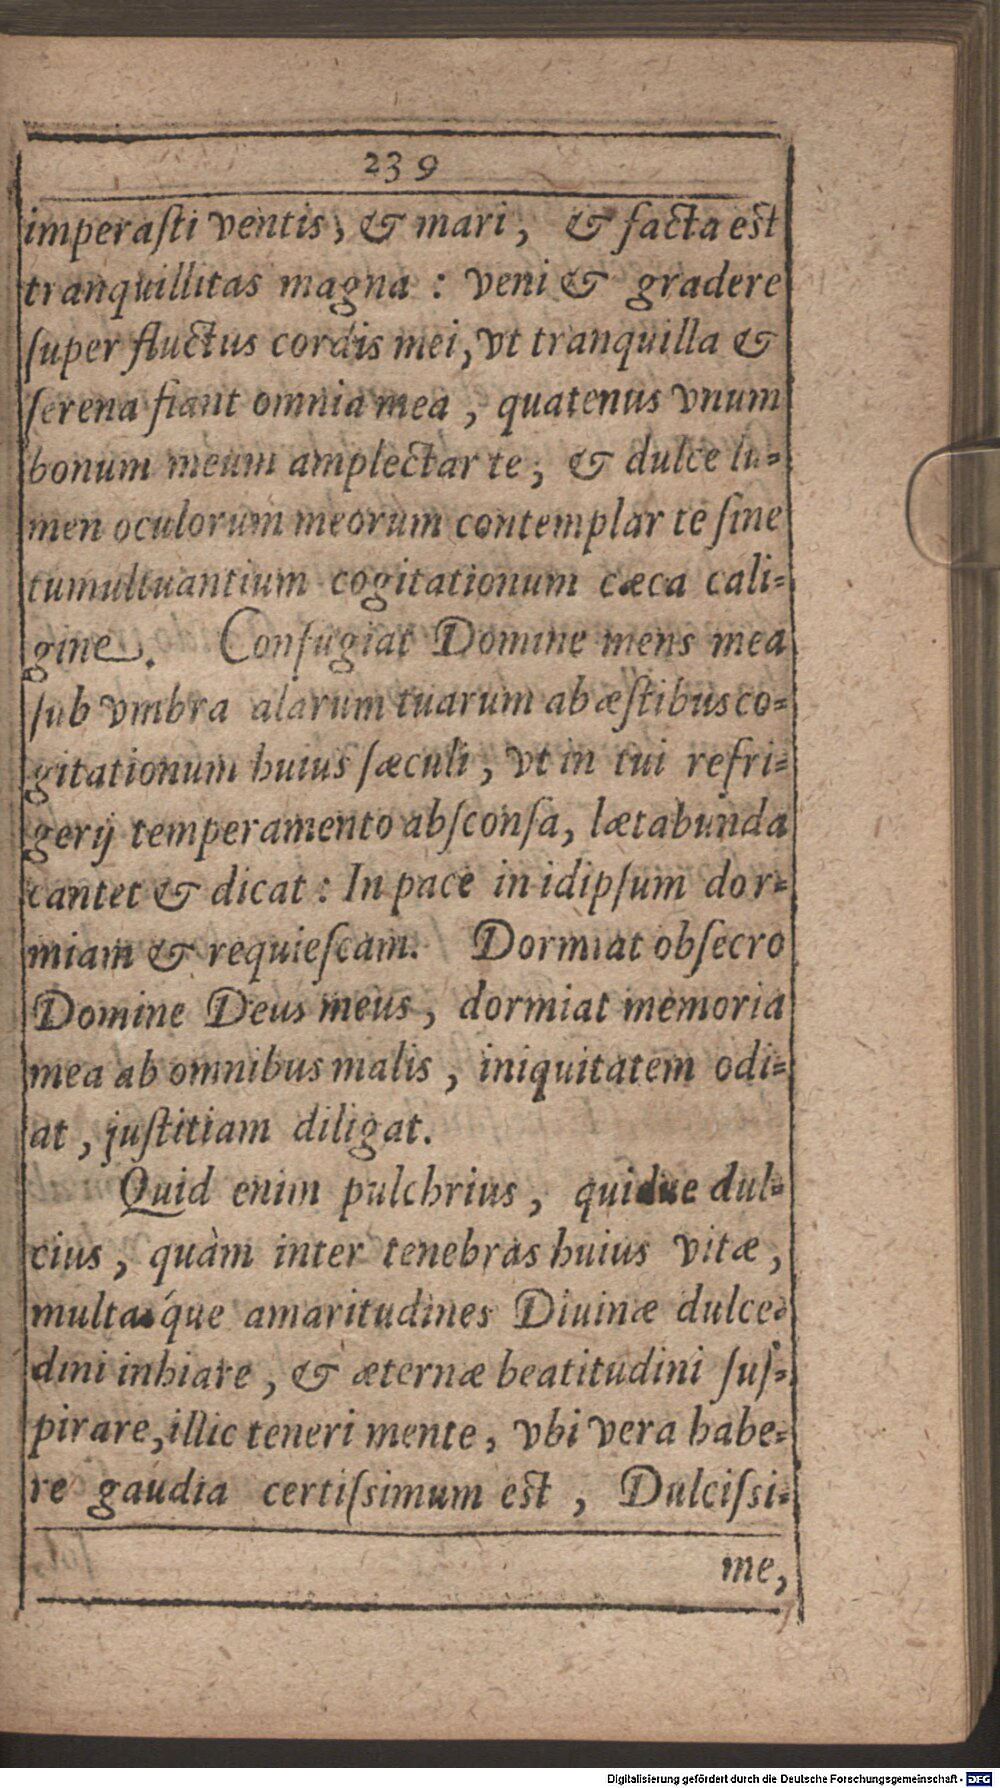 239
imperaſti ventis, & mari, & facta est
tranquillitas magna : veni & gradere
ſuper fluctus cordis mei, vt tranquilla &
ſerena fiant omnia mea, quatenus vnum
bonum meum amplectar te, & dulce lu-
men oculorum meorum contemplar te ſine
tumultuantium cogitationum cæca cali-
gine. Confugiat Domine mens mea
ſub vmbra alarum tuarum ab æſtibus co-
gitationum huius ſæculi, vt in tui refri-
gerij temperamento abſconſa, lætabunda
cantet & dicat : In pace in idipſum dor-
miam & requieſcam. Dormiat obſecro
Domine Deus meus, dormiat memoria
mea ab omnibus malis, iniquitatem odi-
at, juſtitiam diligat.
Quid enim pulchrius, quidue dul-
cius, quàm inter tenebras huius vitæ,
multasque amaritudines Diuinæ dulce-
dini inhiare, & æternæ beatitudini ſuſ-
pirare, illic teneri mente, vbi vera habe-
re gaudia certiſsimum est, Dulciſsi-
me,
Digitalisierung gefördert durch die Deutsche Forschungsgemeinschaft - DFG